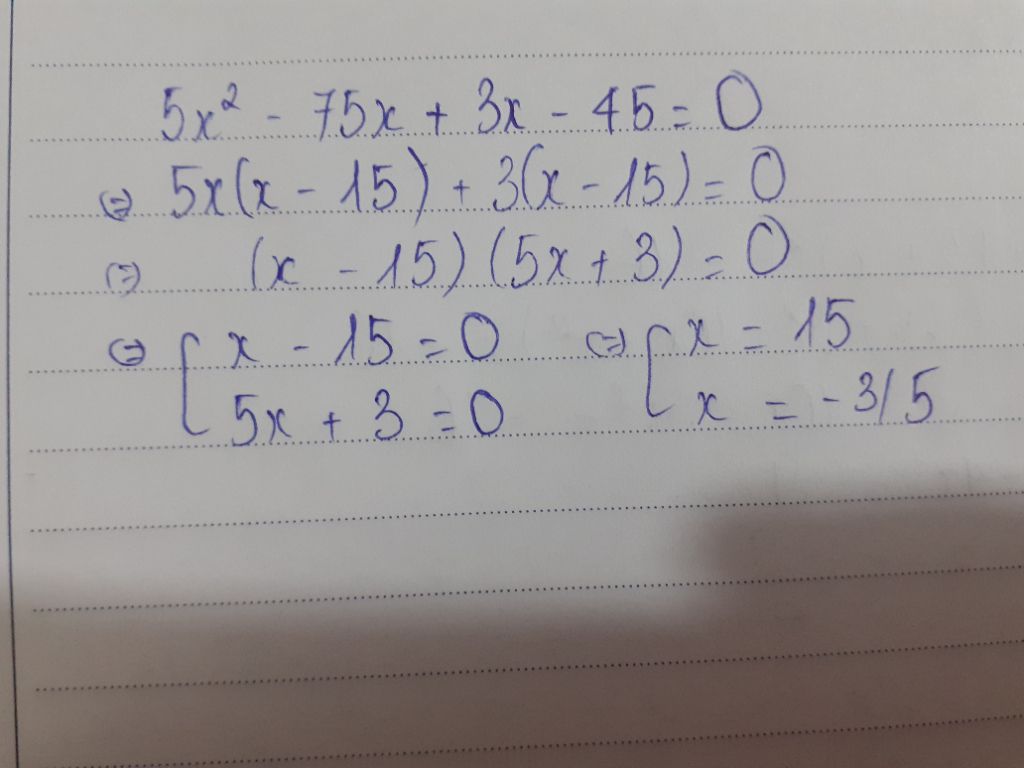 5x² - 75x + 3x - 45 = 0
⇔ 5x(x - 15) + 3(x - 15) = 0
⇔ (x - 15)(5x + 3) = 0
⇔ [ x - 15 = 0 ⇔ [ x = 15
5x + 3 = 0 x = -3/5